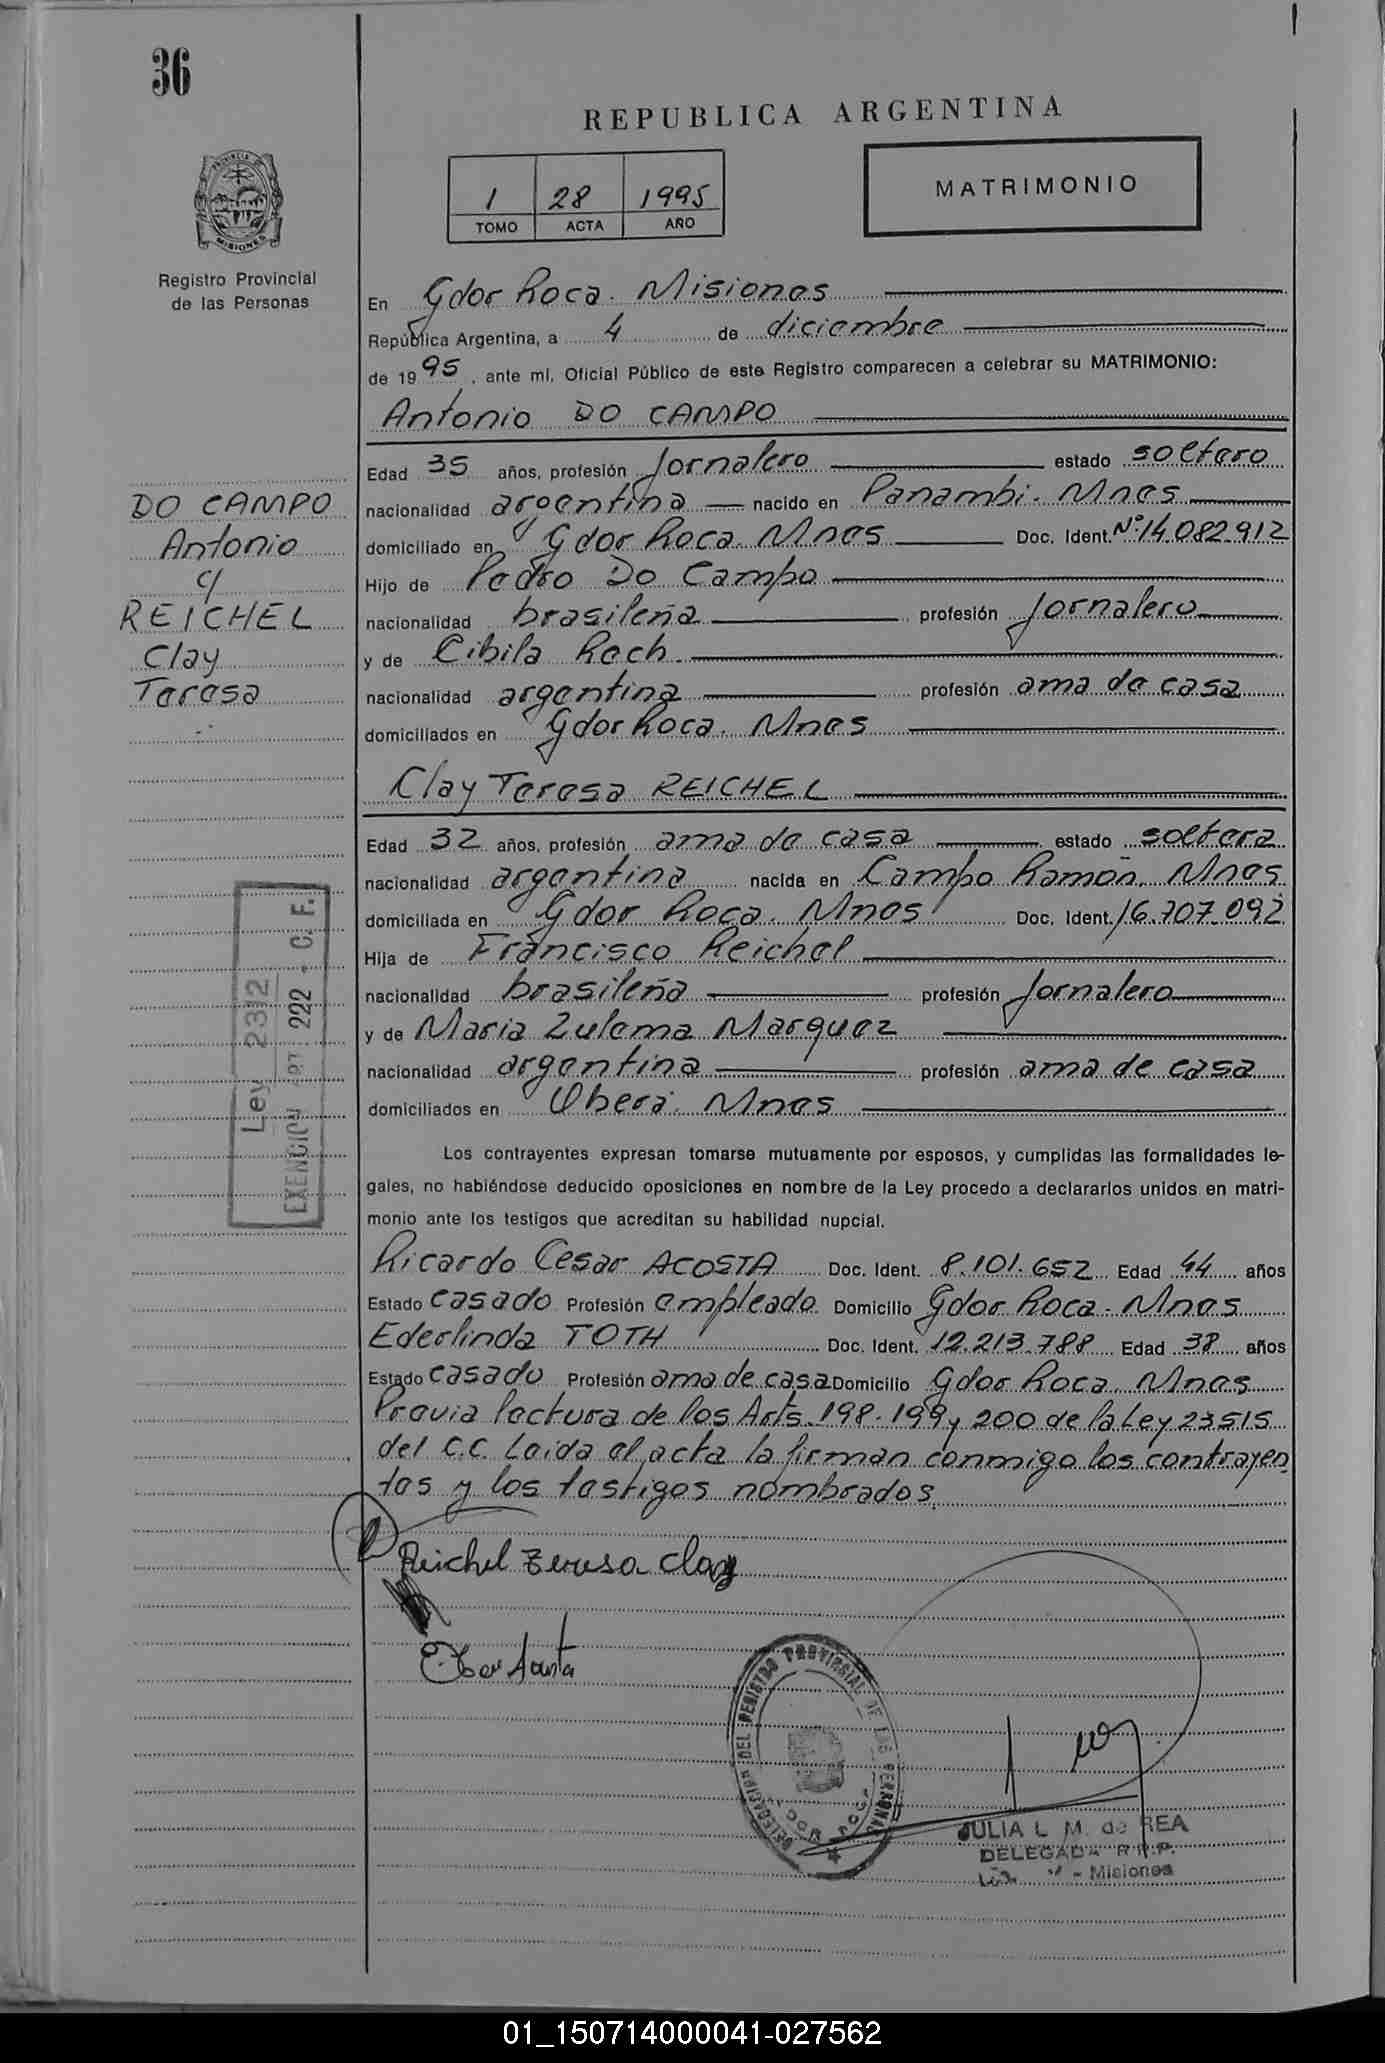 36
REPUBLICA ARGENTINA
1 28 1995
TOMO ACTA AÑO
MATRIMONIO
PROVINCIA DE
MISIONES
Registro Provincial
de las Personas
En Gdor Roca. Misiones
República Argentina, a 4 de diciembre
de 1995, ante mí, Oficial Público de este Registro comparecen a celebrar su MATRIMONIO:
Antonio DO CAMPO
Edad 35 años, profesión Jornalero estado soltero
nacionalidad argentina nacido en Panambi. Mnes
domiciliado en Gdor Roca. Mnes Doc. Ident. Nº 14.082.912
Hijo de Pedro Do Campo
nacionalidad brasileña profesión Jornalero
y de Cibila Rech.
nacionalidad argentina profesión ama de casa
domiciliados en Gdor Roca. Mnes
DO CAMPO
Antonio
c/
REICHEL
Clay
Teresa
Clay Teresa REICHEL
Edad 32 años, profesión ama de casa estado soltera
nacionalidad argentina nacida en Campo Ramón. Mnes
domiciliada en Gdor Roca. Mnes Doc. Ident. 16.707.092
Hija de Francisco Reichel
nacionalidad brasileña profesión Jornalero
y de Maria Zulema Marquez
nacionalidad argentina profesión ama de casa
domiciliados en Oberá. Mnes
Ley 2312
EXENCION ART. 222 - C. F.
Los contrayentes expresan tomarse mutuamente por esposos, y cumplidas las formalidades le-
gales, no habiéndose deducido oposiciones en nombre de la Ley procedo a declararlos unidos en matri-
monio ante los testigos que acreditan su habilidad nupcial.
Ricardo Cesar ACOSTA Doc. Ident. 8.101.652 Edad 44 años
Estado casado Profesión empleado Domicilio Gdor Roca. Mnes
Ederlinda TOTH Doc. Ident. 12.213.788 Edad 38 años
Estado casado Profesión ama de casa Domicilio Gdor Roca. Mnes
Previa lectura de los Arts. 198. 199 y 200 de la Ley 23515
del C.C. Leida el acta la firman conmigo los contrayen
tes y los testigos nombrados.
Reichel Teresa Clay
DELEGACION DEL REGISTRO PROVINCIAL DE LAS PERSONAS
GDOR ROCA
JULIA L. M. de REA
DELEGADA R.P.P.
- Misiones
01_150714000041-027562